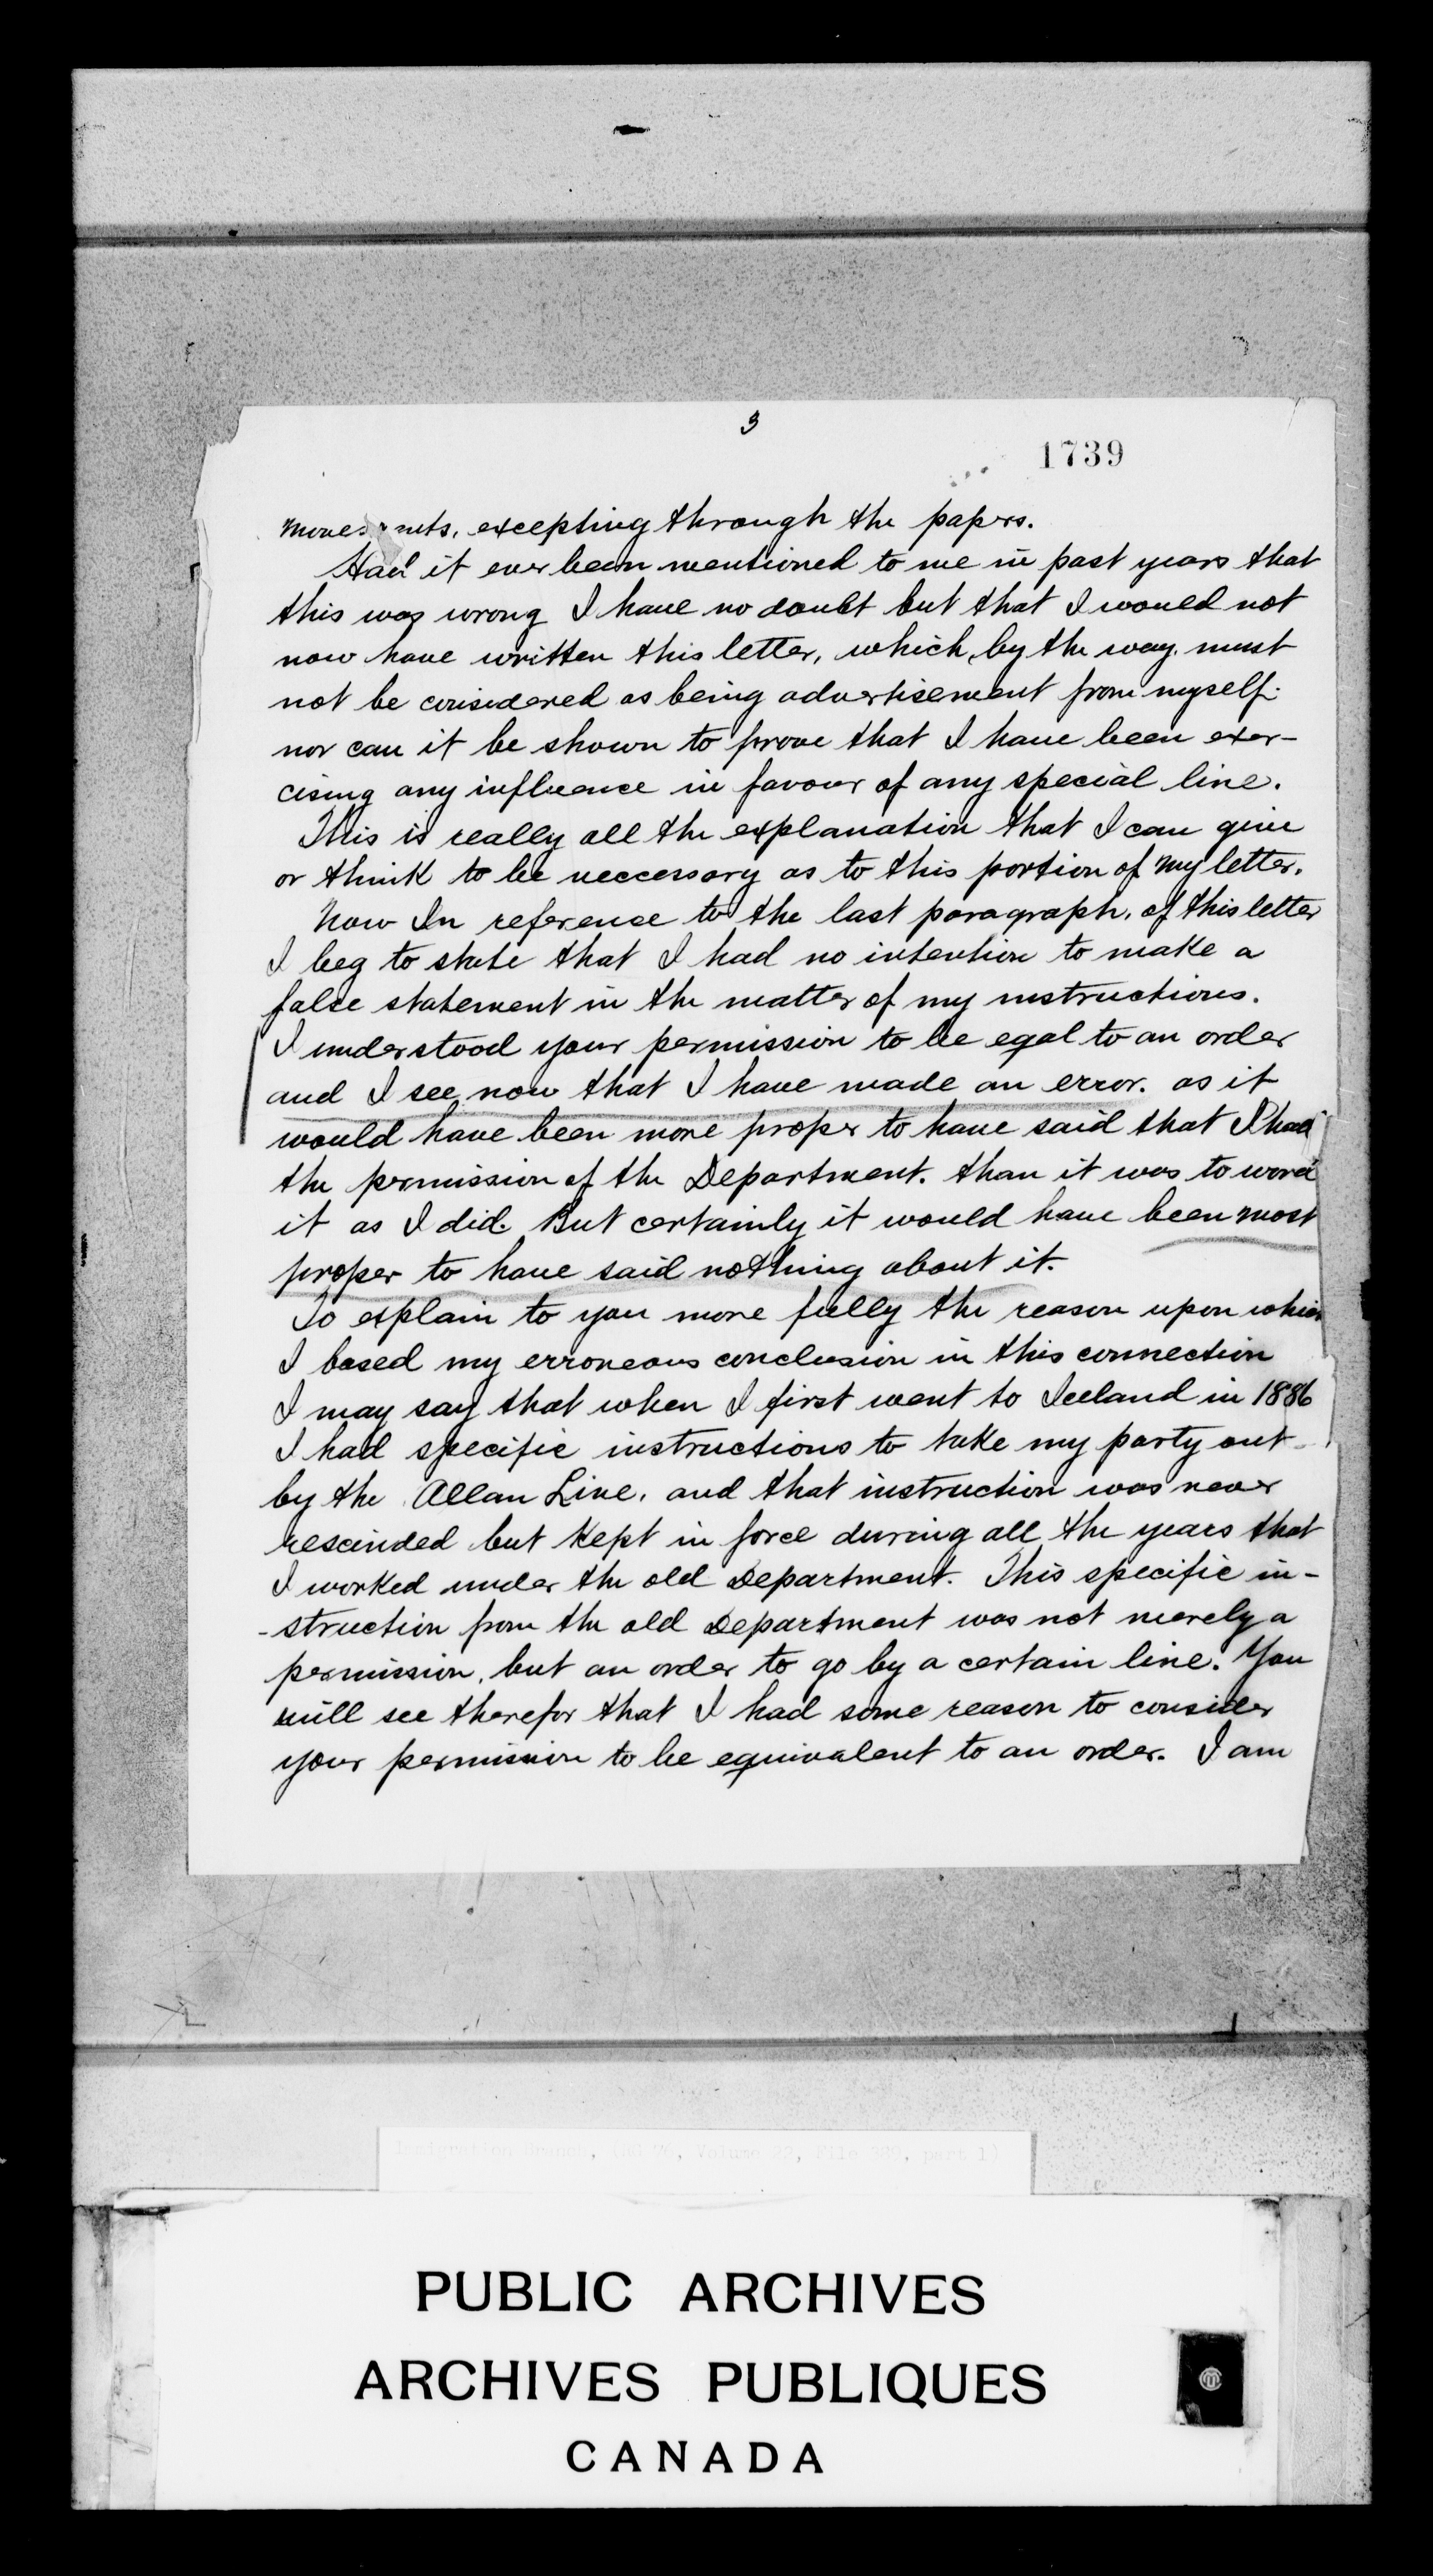 3
1739
movements, excepting through the papers.
Had it ever been mentioned to me in past years that
this was wrong I have no doubt but that I would not
now have written this letter, which, by the way, must
not be considered as being advertisement from myself;
nor can it be shown to prove that I have been exer-
cising any influence in favour of any special line.
This is really all the explanation that I can give
or think to be neccessary as to this portion of my letter.
Now In reference to the last paragraph, of this letter
I beg to state that I had no intention to make a
false statement in the matter of my instructions.
I understood your permission to be egal to an order
and I see now that I have made an error. as it
would have been more proper to have said that I had
the permission of the Department. than it was to word
it as I did. But certainly it would have been most
proper to have said nothing about it.
To explain to you more fully the reason upon which
I based my erroneous conclusion in this connection
I may say that when I first went to Iceland in 1886
I had specific instructions to take my party out
by the Allan Line, and that instruction was never
rescinded but kept in force during all the years that
I worked under the old Department. This specific in-
-struction from the old Department was not merely a
permission, but an order to go by a certain line. You
will see therefor that I had some reason to consider
your permission to be equivalent to an order. I am
Immigration Branch, (RG 76, Volume 22, File , part 1)
PUBLIC ARCHIVES
ARCHIVES PUBLIQUES
CANADA